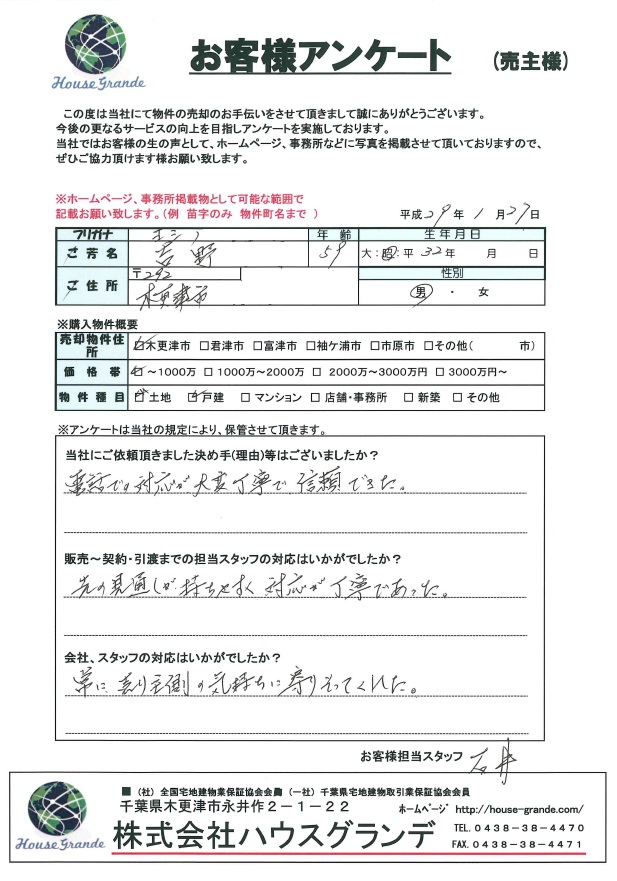 House Grande
お客様アンケート (売主様)
この度は当社にて物件の売却のお手伝いをさせて頂きまして誠にありがとうございます。
今後の更なるサービスの向上を目指しアンケートを実施しております。
当社ではお客様の生の声として、ホームページ、事務所などに写真を掲載させて頂いておりますので、
ぜひご協力頂けます様お願い致します。
※ホームページ、事務所掲載物として可能な範囲で
記載お願い致します。(例 苗字のみ 物件町名まで )
平成29年 1月27日
フリガナ ヨシノ 年齢 生年月日
ご芳名 吉野 59 大:昭:平 32年 月 日
ご住所 〒292 性別
木更津市 男 ・ 女
※購入物件概要
売却物件住所 ☑木更津市 □君津市 □富津市 □袖ケ浦市 □市原市 □その他( 市)
価格帯 ☑~1000万 □1000万~2000万 □2000万~3000万円 □3000万円~
物件種目 ☑土地 ☑戸建 □マンション □店舗・事務所 □新築 □その他
※アンケートは当社の規定により、保管させて頂きます。
当社にご依頼頂きました決め手(理由)等はございましたか?
電話での対応が大変丁寧で、信頼できた。
販売~契約・引渡までの担当スタッフの対応はいかがでしたか?
先の見通しが持ちやすく対応が丁寧であった。
会社、スタッフの対応はいかがでしたか?
常に、売り主側の気持ちに寄りそってくれた。
お客様担当スタッフ 石井
House Grande
■(社)全国宅地建物業保証協会会員 (一社)千葉県宅地建物取引業保証協会会員
千葉県木更津市永井作2-1-22 ホームページ http://house-grande.com/
株式会社ハウスグランデ TEL.0438-38-4470
FAX.0438-38-4471